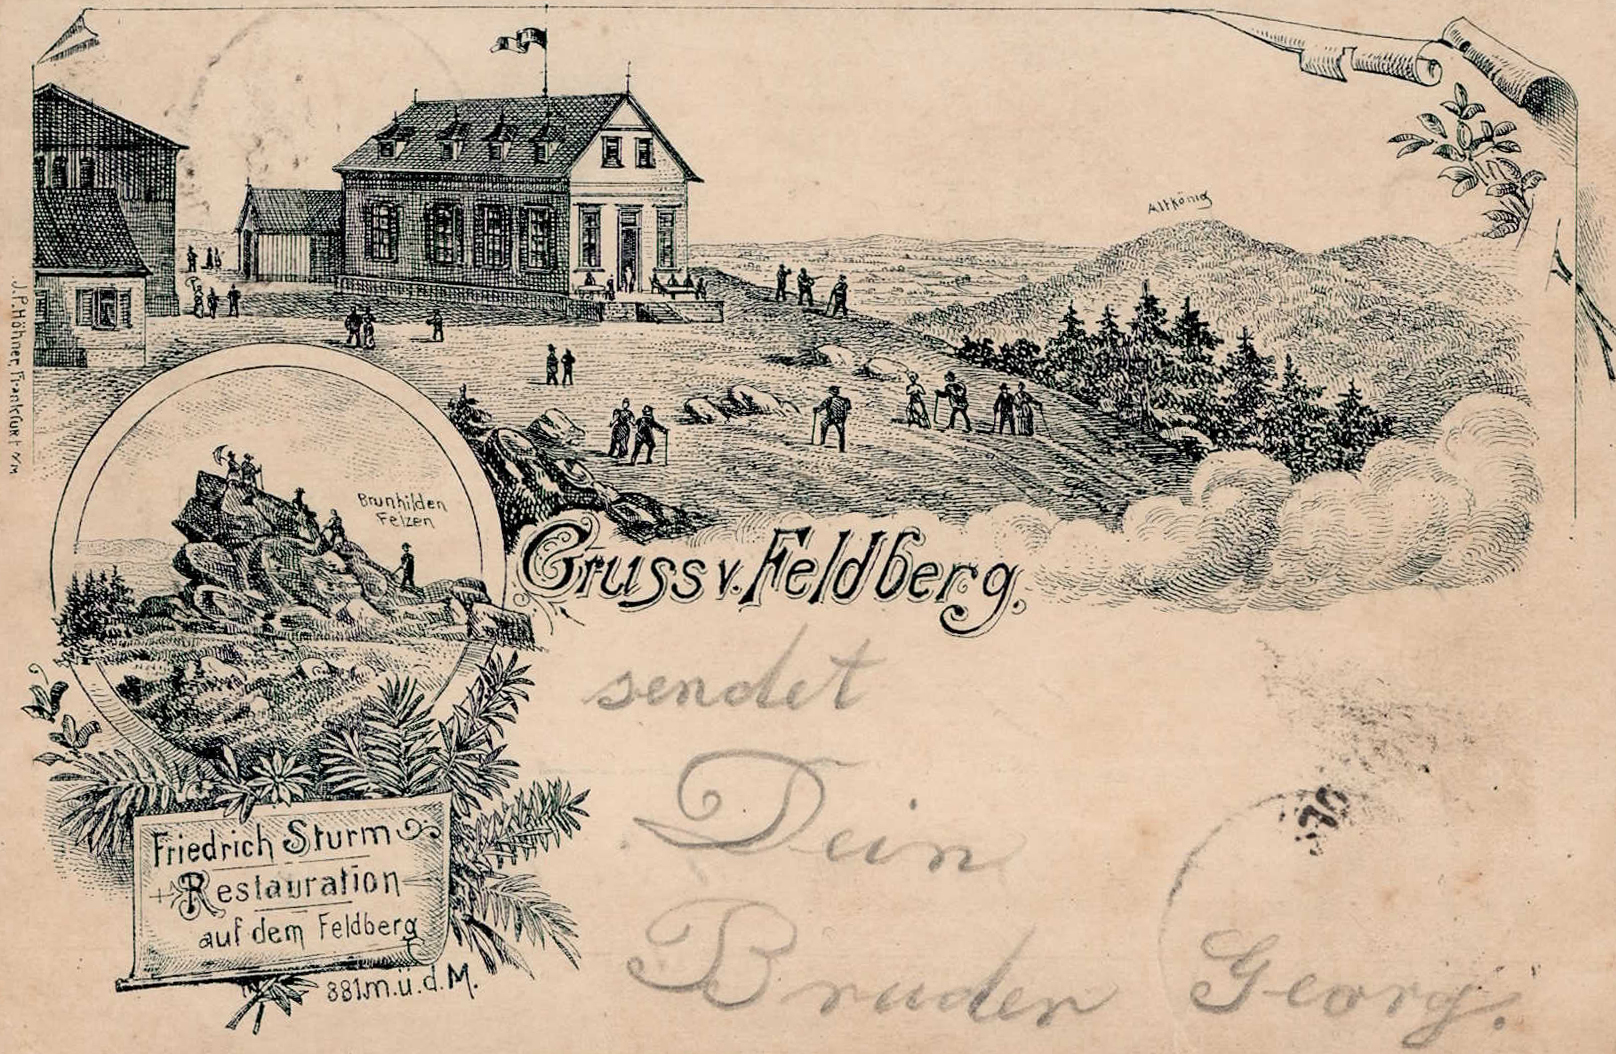 Altkönig
J.P. Höhner, Frankfurt a/M
Brunhilden
Felzen
Gruss v. Feldberg.
sendet
Dein
Bruder Georg.
Friedrich Sturm
Restauration
auf dem Feldberg
881m.ü.d.M.